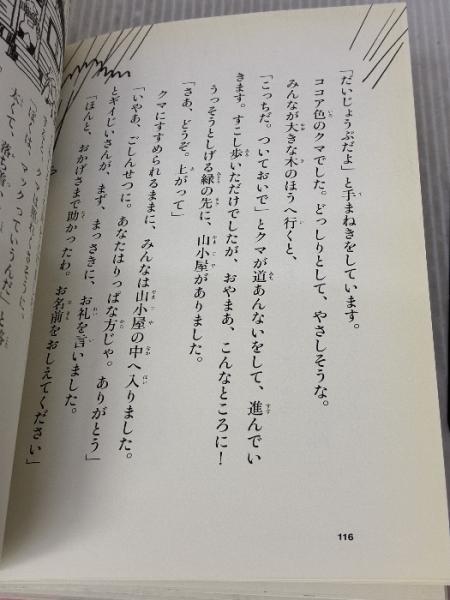 「だいじょうぶだよ」と手まねきをしています。
ココア色のクマでした。どっしりとして、やさしそうな。
みんなが大きな木のほうへ行くと、
「こっちだ。ついておいで」とクマが道あんないをして、進んでい
きます。すこし歩いただけでしたが、おやまあ、こんなところに!
うっそうとしげる緑の先に、山小屋がありました。
「さあ、どうぞ。上がって」
クマにすすめられるままに、みんなは山小屋の中へ入りました。
「いやあ、ごしんせつに。あなたはりっぱな方じゃ。ありがとう」
とギイじいさんが、まず、まっさきに、お礼を言いました。
「ほんと、おかげさまで助かったわ。お名前をおしえてください」
クマは照れくさそうに、
「ぼくは、マックっていうんだ」と
116